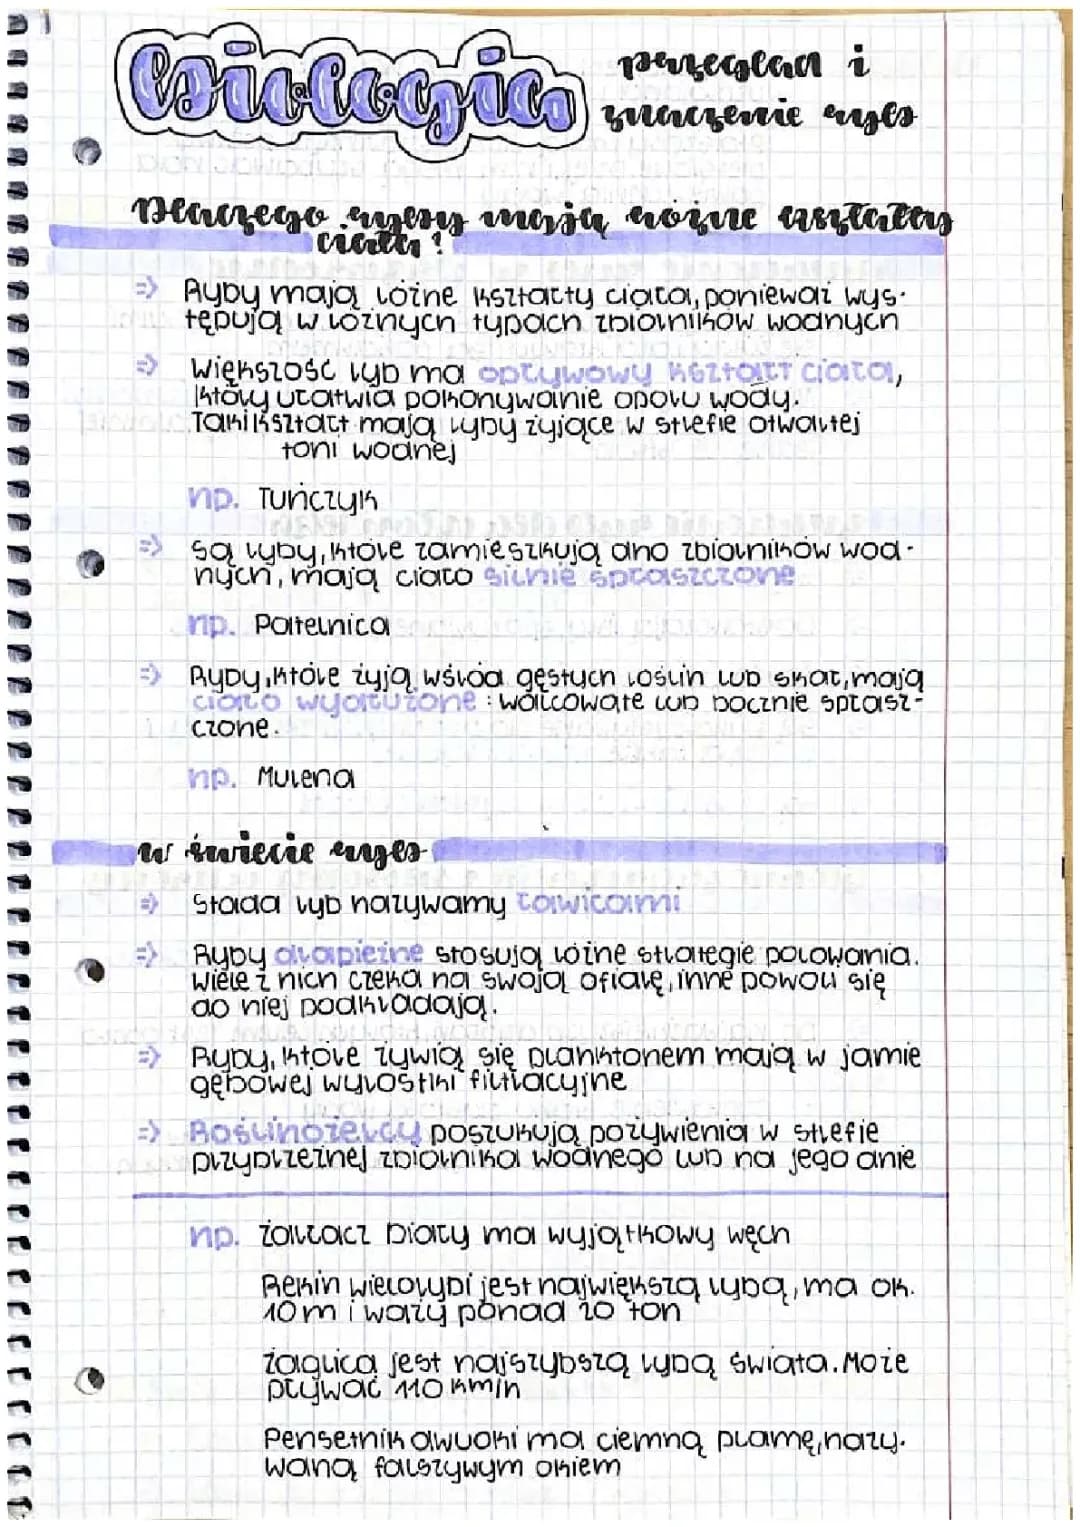 Biologia
przegląd i
znaczenie ryb
Dlaczego ryby mają różne kształty
ciała?
=> Ryby mają różne kształty ciała, ponieważ wys-
tępują w różnych typach zbiorników wodnych
=> Większość ryb ma opływowy kształt ciała,
który ułatwia pokonywanie oporu wody.
Taki kształt mają ryby żyjące w strefie otwartej
toni wodnej
np. Tuńczyk
=> Są ryby, które zamieszkują dno zbiorników wod-
nych, mają ciało silnie spłaszczone
np. Patelnica
=> Ryby, które żyją wśród gęstych roślin lub skał, mają
ciało wydłużone: walcowate lub bocznie spłasz-
czone.
np. Murena
w świecie ryb
=> Stada ryb nazywamy ławicami
=> Ryby drapieżne stosują różne strategie polowania.
Wiele z nich czeka na swoją ofiarę, inne powoli się
do niej podkradają.
=> Ryby, które żywią się planktonem mają w jamie
gębowej wyrostki filtracyjne
=> Roślinożercy poszukują pożywienia w strefie
przybrzeżnej zbiornika wodnego lub na jego dnie
np. Żarłacz biały ma wyjątkowy węch
Rekin wielorybi jest największą rybą, ma ok.
10 m i waży ponad 20 ton
Żaglica jest najszybszą rybą świata. Może
pływać 110 kmin
Pensetnik dwuoki ma ciemną plamę, nazy-
waną fałszywym okiem